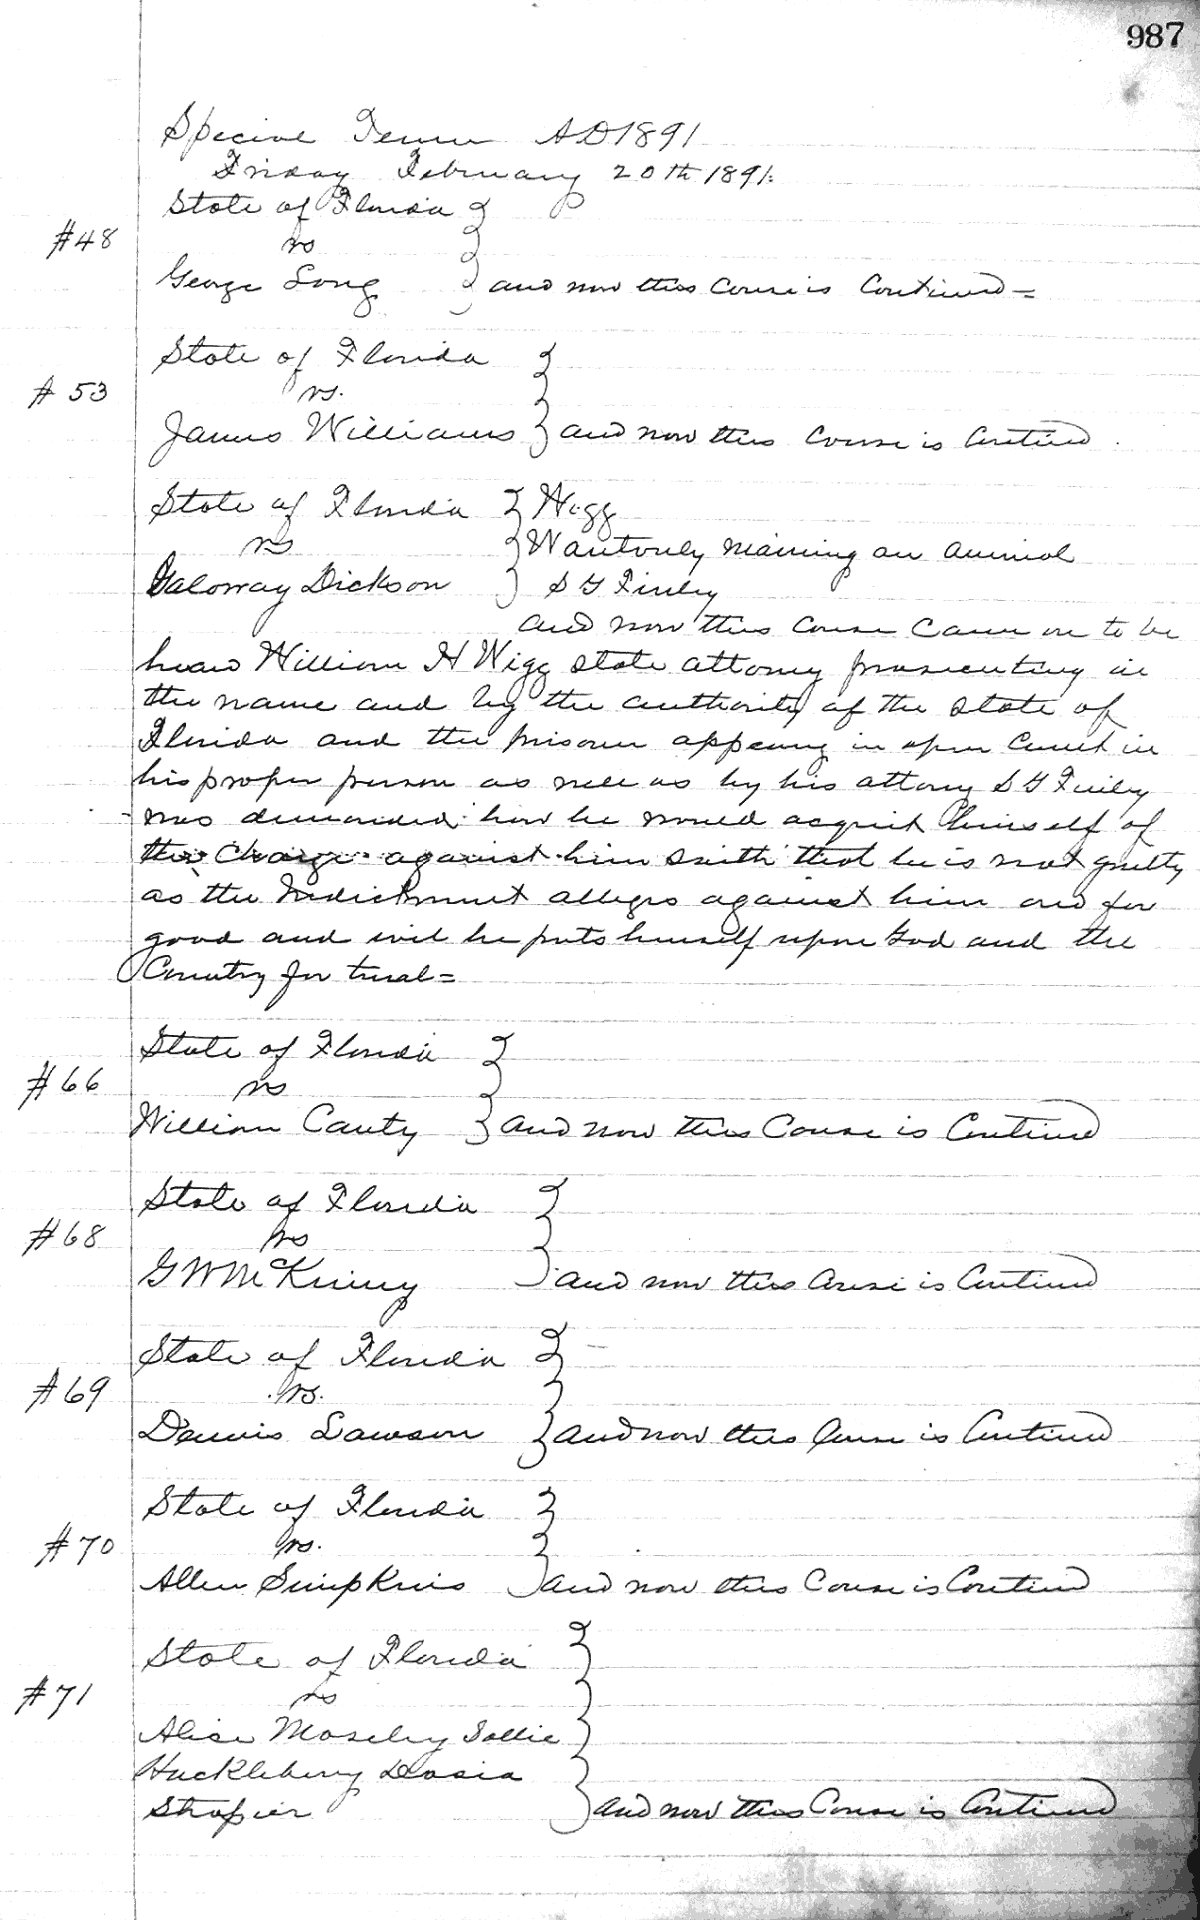 987
Special Term AD 1891
Friday February 20th 1891.
State of Florida
#48
vs
George Long and now this Cause is Continued =
State of Florida
# 53
vs.
James Williams and now this Cause is Continued.
State of Florida Wigg
vs Wantonly Maiming an animal
Galoway Dickson S G Finley
and now this Cause Came on to be
heard William H Wigg state attorney prosecuting in
the name and by the authority of the State of
Florida and the prisoner appearing in open Court in
his proper person as well as by his attorny S G Finley
was demanded how he would acquit himself of
the Charge against him saith that he is not guilty
as the Indictment alleges against him and for
good and evil he puts himself upon God and the
Country for trial =
State of Florida
#66
vs
William Canty and now this Cause is Continued
State of Florida
#68
vs
G W McKinny and now this Cause is Continued
State of Florida
#69
vs.
Dennis Lawson and now this Cause is Continued
State of Florida
#70
vs.
Allen SimpKins and now this Cause is Continued
State of Florida
#71
vs
Alice Moseley Sallie
Huckleberry Dosia
and now this Cause is Continued